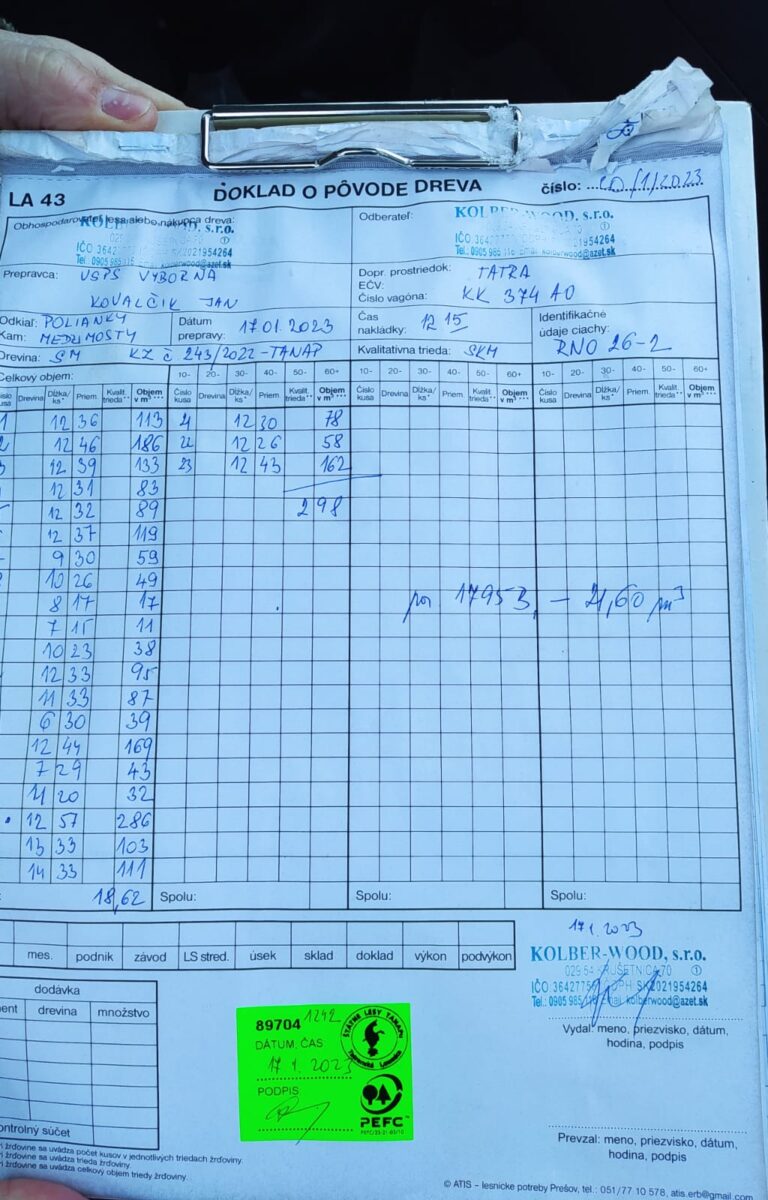 LA 43 DOKLAD O PÔVODE DREVA číslo: /1/2023
Obhospodarovateľ lesa alebo nákupca dreva: Odberateľ:
s.r.o. KOLBER-WOOD, s.r.o.
SK2021954264 2021954264
Tel.: 0905 985 116 kolberwood@azet.sk Tel.: 0905 985 116 kolberwood@azet.sk
Prepravca: VSPS VÝBORNÁ Dopr. prostriedok: TATRA
KOVALČIK JAN EČV:
Číslo vagóna: KK 374 AO
Odkiaľ: POLIANKY Dátum prepravy: 17.01.2023 Čas nakládky: 12 15 Identifikačné údaje ciachy:
Kam: MEDZIMOSTY RNO 26-2
Drevina: SM KZ č 243/2022-TANAP Kvalitatívna trieda: SKM
Celkový objem: 10- 20- 30- 40- 50- 60+ 10- 20- 30- 40- 50- 60+ 10- 20- 30- 40- 50- 60+
Drevina Dĺžka/ks* Priem. Kvalit. trieda** Objem v m³ *** Číslo kusa Drevina Dĺžka/ks* Priem. Kvalit. trieda** Objem v m³ *** Číslo kusa Drevina Dĺžka/ks* Priem. Kvalit. trieda** Objem v m³ *** Číslo kusa Drevina Dĺžka/ks* Priem. Kvalit. trieda** Objem v m³ ***
1 12 36 113 21 12 30 78
2 12 46 186 22 12 26 58
3 12 39 133 23 12 43 162
12 31 83
12 32 89 298
12 37 119
9 30 59
10 26 49
8 17 17 17953 - 21,60 m³
7 15 11
10 23 38
12 33 95
11 33 87
6 30 39
12 44 169
7 29 43
11 20 32
12 57 286
13 33 103
14 33 111
18,62 Spolu: Spolu: Spolu:
mes. podnik závod LS stred. úsek sklad doklad výkon podvýkon
17.1.2023
KOLBER-WOOD, s.r.o.
029 54 KRUŠETNICA 70
SK2021954264
Tel.: 0905 985 116 kolberwood@azet.sk
Vydal: meno, priezvisko, dátum,
hodina, podpis
dodávka
drevina množstvo
kontrolný súčet
89704 1242
DÁTUM, ČAS
17 1. 2023
PODPIS
ŠTÁTNE LESY TANAPU
PEFC
Prevzal: meno, priezvisko, dátum,
hodina, podpis
žrďovine sa uvádza počet kusov v jednotlivých triedach žrďoviny.
žrďovine sa uvádza trieda žrďoviny.
žrďovine sa uvádza celkový objem triedy žrďoviny.
© ATIS – lesnícke potreby Prešov, tel.: 051/77 10 578, atis.erb@gmail.com